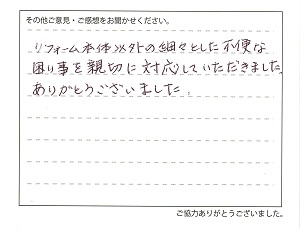 その他ご意見・ご感想をお聞かせください。
リフォーム本体以外の細々とした不便な
困り事を親切に対応していただきました。
ありがとうございました。
ご協力ありがとうございました。